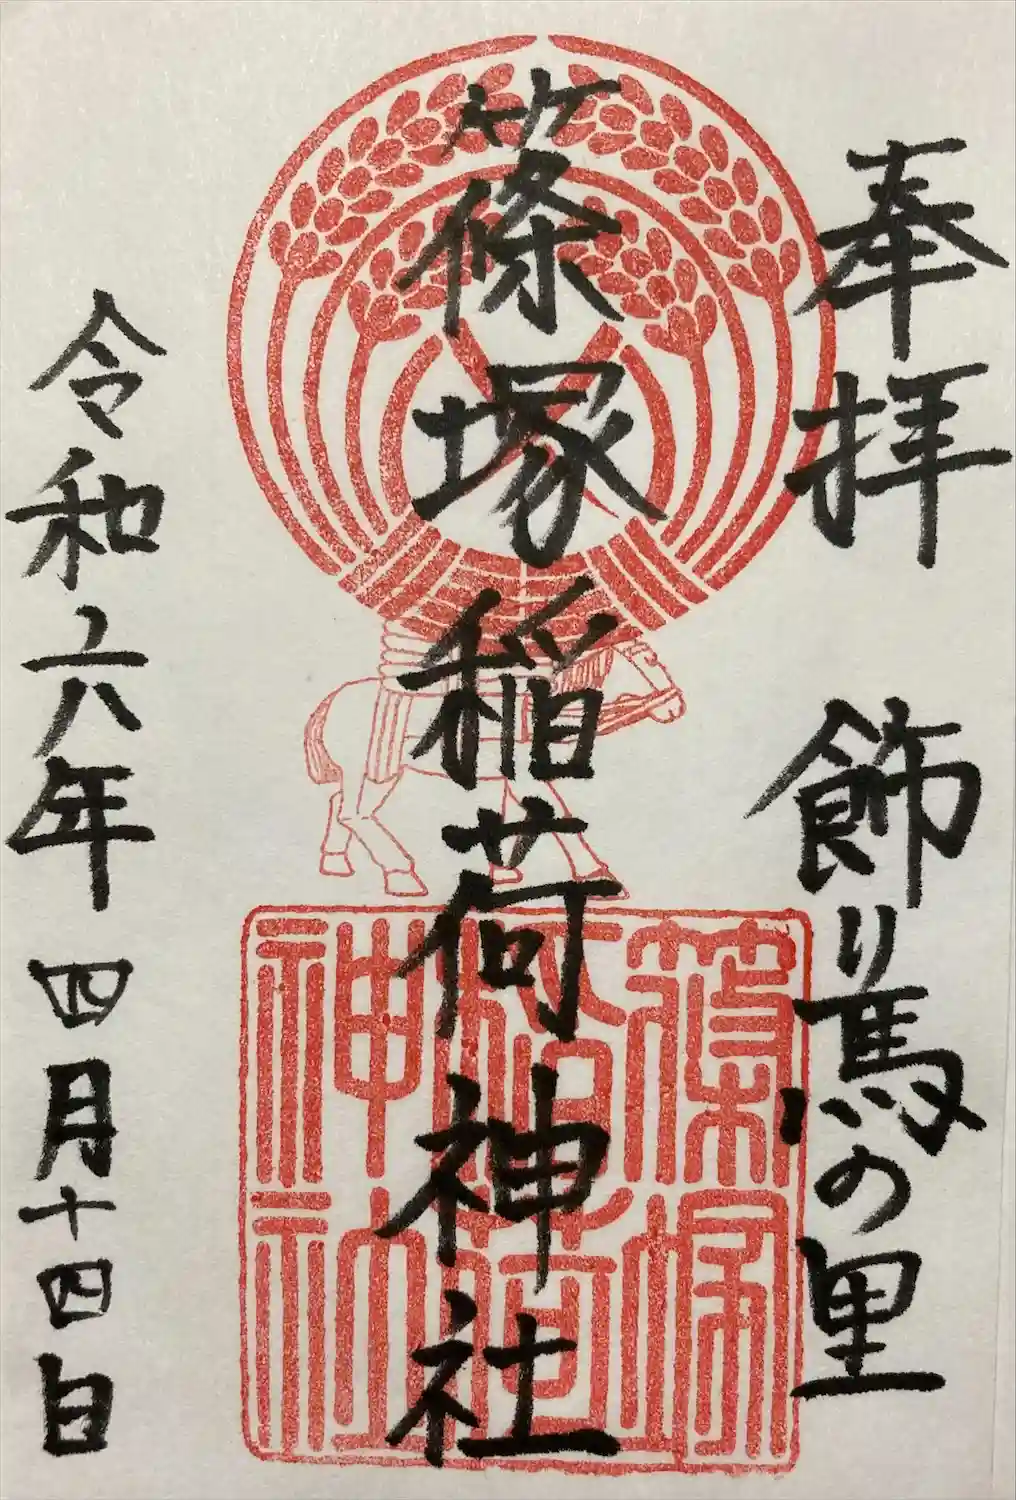 奉拝 飾り馬の里
篠塚稲荷神社
令和六年四月十四日
篠塚
稲荷
神社